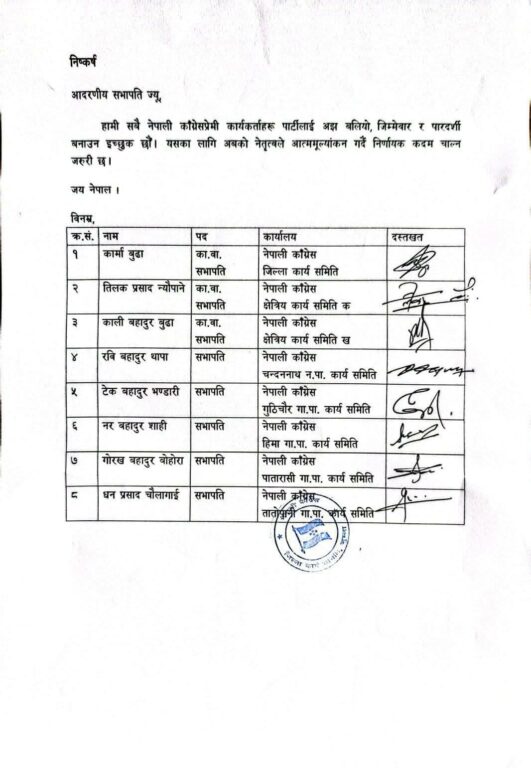 निष्कर्ष
आदरणीय सभापति ज्यू,
हामी सबै नेपाली काँग्रेसप्रेमी कार्यकर्ताहरू पार्टीलाई अझ बलियो, जिम्मेवार र पारदर्शी
बनाउन इच्छुक छौं। यसका लागि अबको नेतृत्वले आत्ममूल्यांकन गर्दै निर्णायक कदम चाल्न
जरुरी छ।
जय नेपाल ।
विनम्र,
क्र.सं. नाम पद कार्यालय दस्तखत
१ कार्मा बुढा का.वा. नेपाली काँग्रेस
सभापति जिल्ला कार्य समिति
२ तिलक प्रसाद न्यौपाने का.वा. नेपाली काँग्रेस
सभापति क्षेत्रिय कार्य समिति क
३ काली बहादुर बुढा का.वा. नेपाली काँग्रेस
सभापति क्षेत्रिय कार्य समिति ख
४ रबि बहादुर थापा सभापति नेपाली काँग्रेस
चन्दननाथ न.पा. कार्य समिति
५ टेक बहादुर भण्डारी सभापति नेपाली काँग्रेस
गुठिचौर गा.पा. कार्य समिति
६ नर बहादुर शाही सभापति नेपाली काँग्रेस
हिमा गा.पा. कार्य समिति
७ गोरख बहादुर बोहोरा सभापति नेपाली काँग्रेस
पातारासी गा.पा. कार्य समिति
८ धन प्रसाद चौलागाई सभापति नेपाली काँग्रेस
तातोपानी गा.पा. कार्य समिति
जिल्ला कार्य समिति, जुम्ला